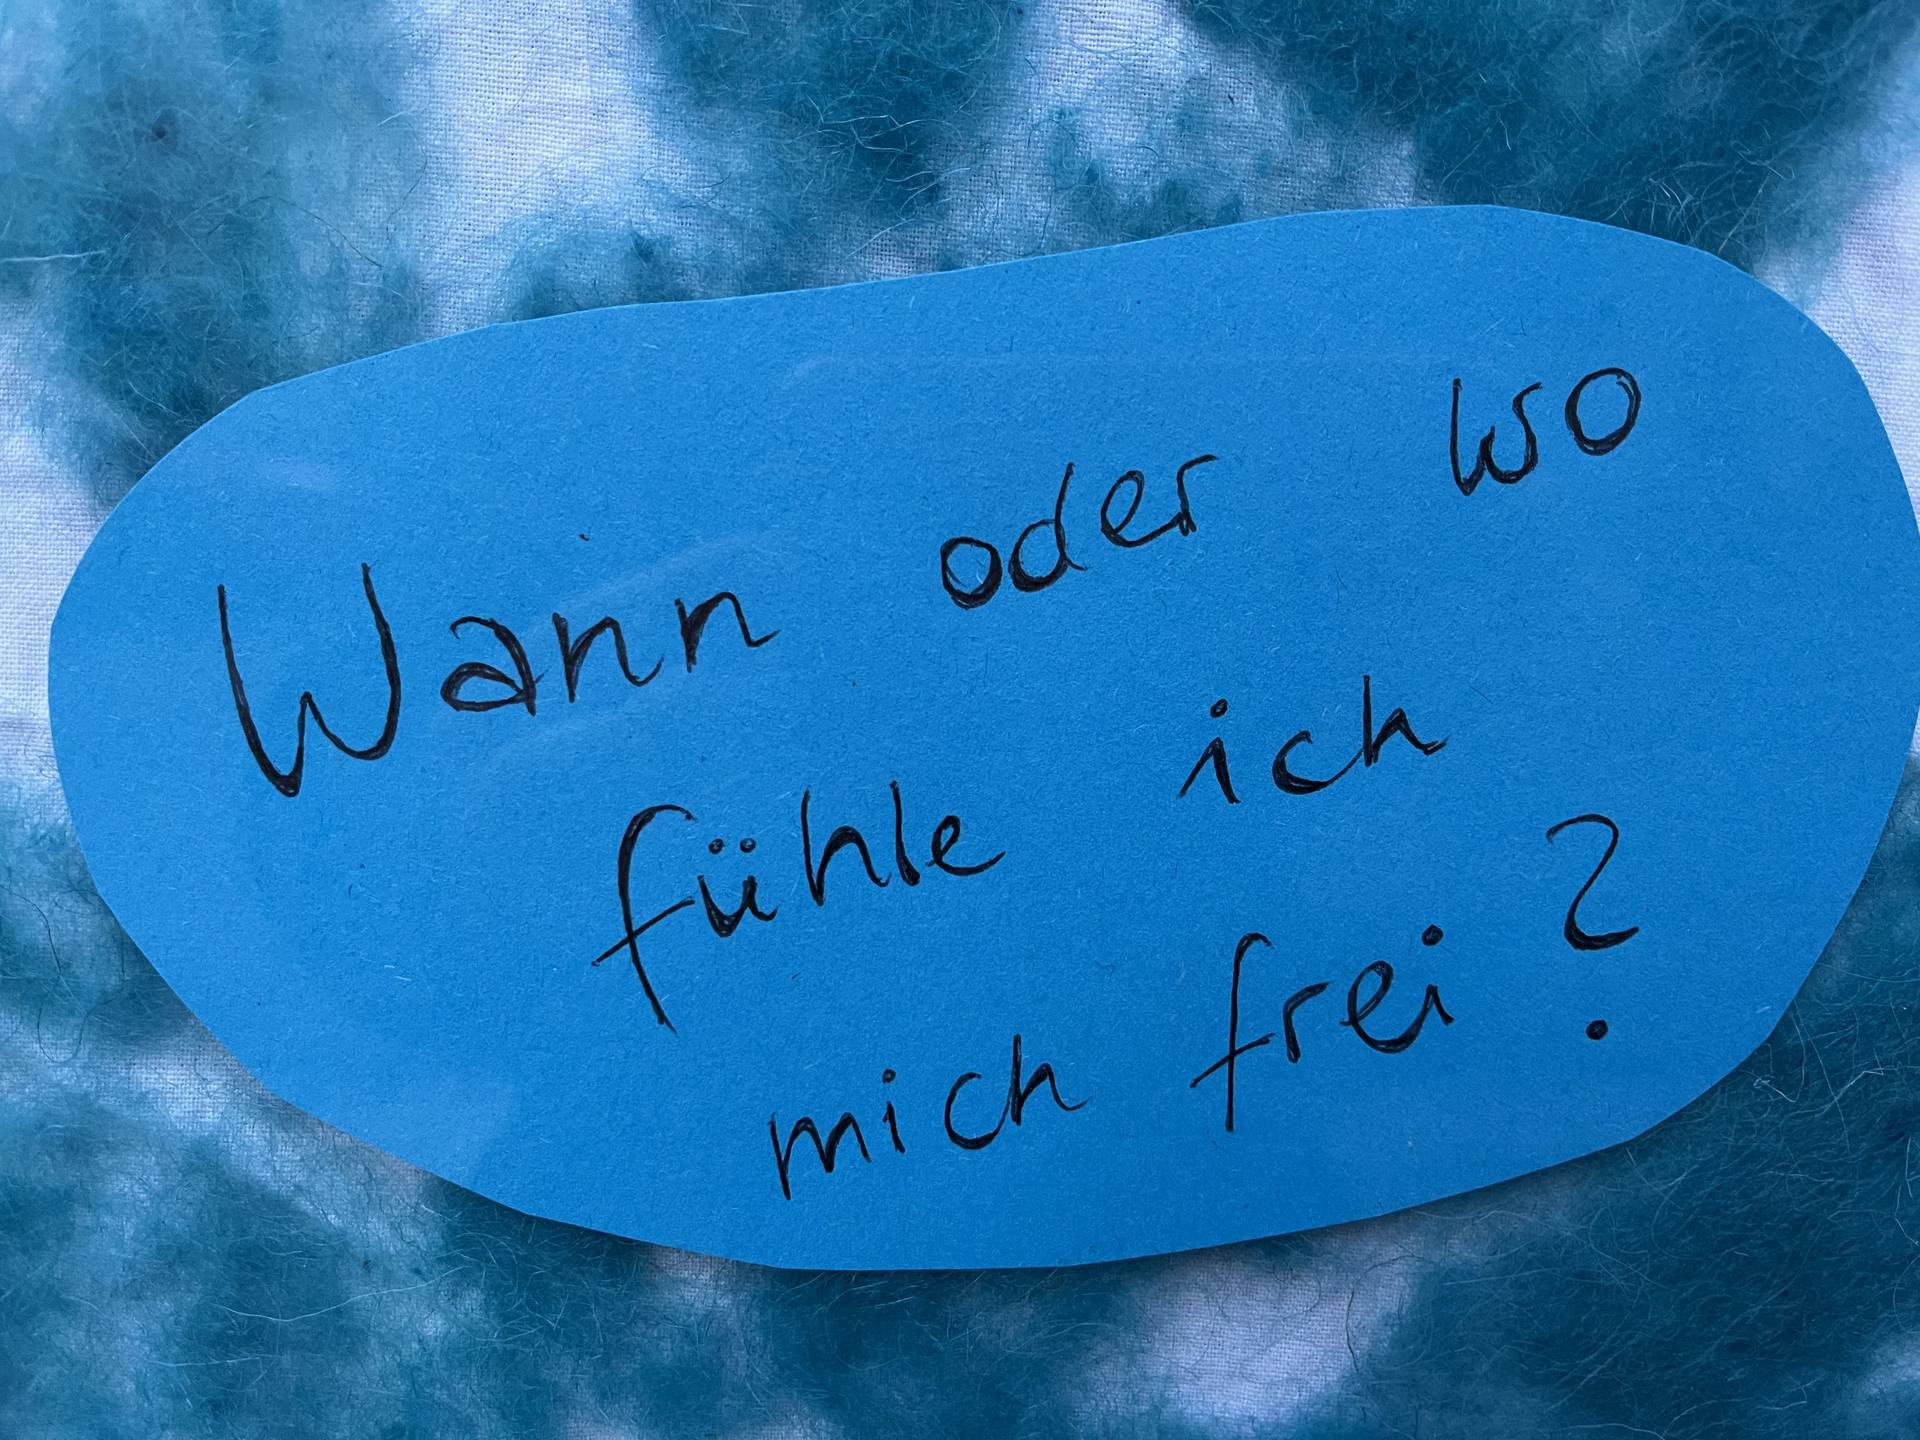 Wann oder wo
fühle ich
mich frei?